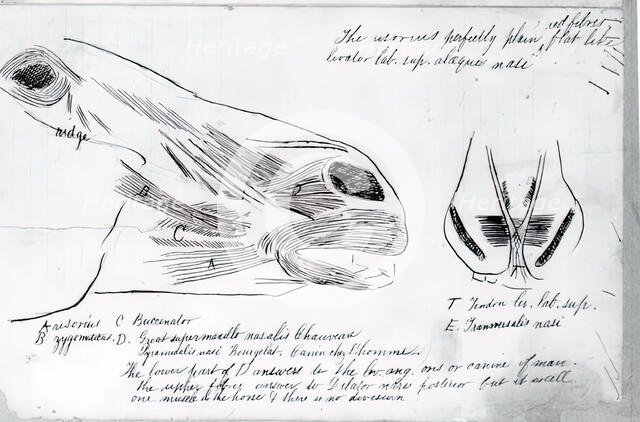 The risorius perfectly plain, red fibres flat like
levator lab. sup. alaeque nasi
ridge
B
C
A
D
T Tendon lev. lab. sup.
E. Transversalis nasi
A risorius C Buccinator
B zygomaticus. D. Great supermaxillo nasalis Chauveau
Pyramidalis nasi Bourgelat, Canin chez l'homme.
The lower part of D answers to the lev. ang. oris or canine of man.
the upper fibres answer to Dilator naris posterior but it is all
one muscle in the horse & there is no division
Heritage
Heritage
Heritage
Heritage